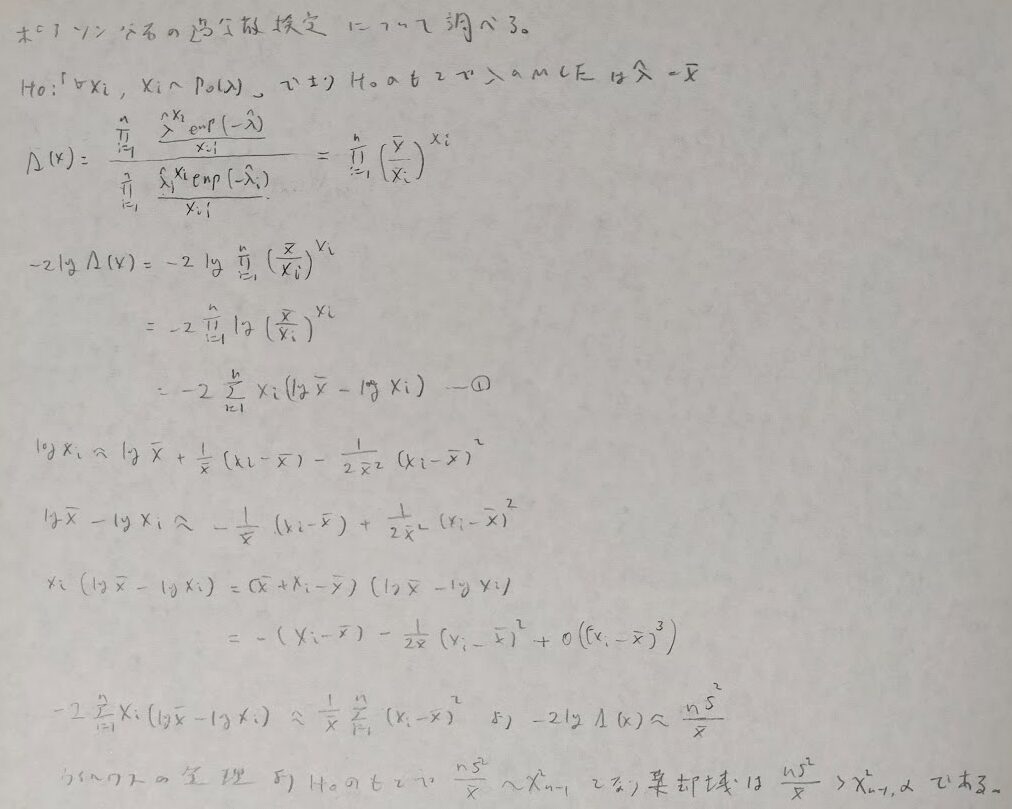 ポアソン分布の過分散検定について調べる。
H₀:「∀xᵢ, xᵢ ~ Po(λ)」であり H₀のもとでλのMLEは λ̂ = x̄
Λ(x) = \frac{\prod_{i=1}^{n} \frac{λ̂^{xᵢ} exp(-λ̂)}{xᵢ!}}{\prod_{i=1}^{n} \frac{λ̂ᵢ^{xᵢ} exp(-λ̂ᵢ)}{xᵢ!}} = \prod_{i=1}^{n} (\frac{x̄}{xᵢ})^{xᵢ}
-2log Λ(x) = -2 log \prod_{i=1}^{n} (\frac{x̄}{xᵢ})^{xᵢ}
= -2 \prod_{i=1}^{n} log (\frac{x̄}{xᵢ})^{xᵢ}
= -2 \sum_{i=1}^{n} xᵢ (log x̄ - log xᵢ) —①
log xᵢ ≈ log x̄ + \frac{1}{x̄} (xᵢ - x̄) - \frac{1}{2x̄²} (xᵢ - x̄)²
log x̄ - log xᵢ ≈ -\frac{1}{x̄} (xᵢ - x̄) + \frac{1}{2x̄²} (xᵢ - x̄)²
xᵢ (log x̄ - log xᵢ) = (x̄ + xᵢ - x̄) (log x̄ - log xᵢ)
= -(xᵢ - x̄) - \frac{1}{2x̄} (xᵢ - x̄)² + O((xᵢ - x̄)³)
-2 \sum_{i=1}^{n} xᵢ (log x̄ - log xᵢ) ≈ \frac{1}{x̄} \sum_{i=1}^{n} (xᵢ - x̄)² より -2log Λ(x) ≈ \frac{ns²}{x̄}
ウィルクスの定理より H₀のもとで \frac{ns²}{x̄} ~ χ²ₙ₋₁ となり棄却域は \frac{ns²}{x̄} > χ²ₙ₋₁,α である。